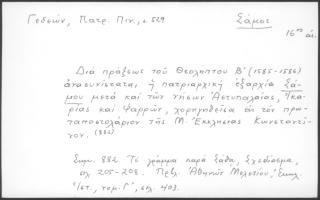 Γεδεών, Πατρ. Πιν., σ. 529
Σάμος
16ος αἰ.
Διά πράξεως τοῦ Θεολήπτου Β' (1585-1586)
ἀνασυνίσταται ἡ πατριαρχική ἐξαρχία Σά-
μου μετά καί τῶν νήσων Ἀστυπαλαίας, Ἰκα-
ρίας καί Ψαρρῶν, χορηγηθεῖσα εἰς τόν πρω-
ταποστολάριον τῆς Μ. Ἐκκλησίας Κωνσταντῖ-
νον. (882)
Σημ. 882. Τό γράμμα παρά Σάθᾳ, Σχεδίασμα,
σελ. 205-208. Πρβλ. Ἀθηνῶν Μελετίου, Ἐκκλ.
Ἱστ., τομ. Γ', σελ. 403.